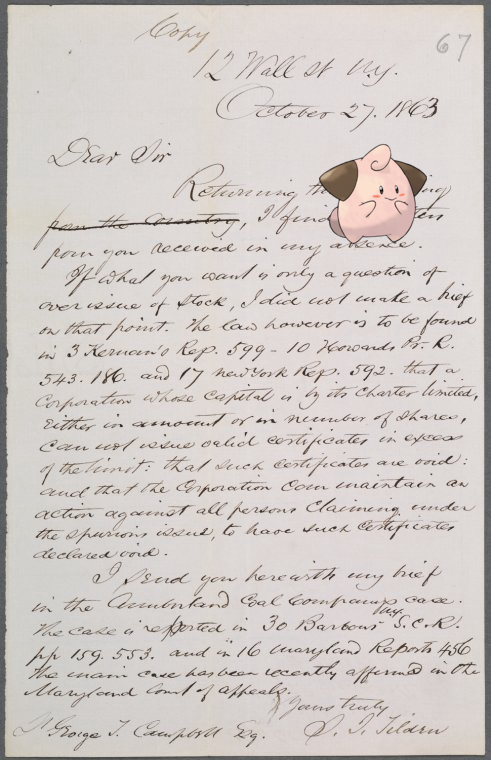 Copy
67
12 Wall st N.Y.
October 27. 1863
Dear Sir
Returning
from the Country, I find
from you received in my absence.
If what you want is only a question of
over issue of stock, I did not make a brief
on that point. The law however is to be found
in 3 Kernan's Rep. 599 - 10 Howards Pr. R.
543. 186. and 17 new York Rep. 592. that a
Corporation whose capital is by its charter limited,
either in amount or in number of shares,
can not issue valid certificates in excess
of the limit: that such certificates are void:
and that the Corporation can maintain an
action against all persons claiming under
the spurious issue, to have such certificates
declared void.
I send you herewith my brief
in the Cumberland Coal Company case.
The case is reported in 30 Barbours N.Y. S.C.R.
pp 159. 553. and in 16 Maryland Reports 456
The main case has been recently affirmed in the
Maryland Court of appeals.
Yours truly
S. J. Tilden
George T. Campbell Esq.